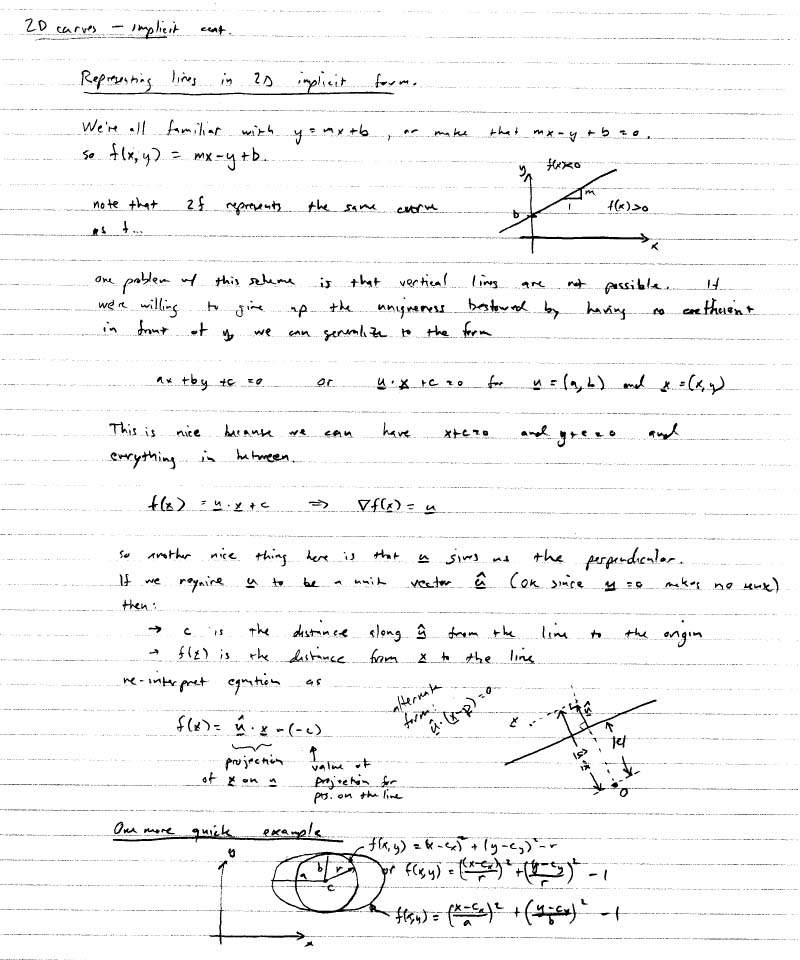 2D curves – implicit cont.
Representing lines in 2D implicit form.
We're all familiar with y = mx+b, or make that mx-y+b=0.
so f(x,y) = mx-y+b.
y
f(x)<0
m
1
f(x)>0
b
x
note that 2f represents the same curve
as f...
one problem w/ this scheme is that vertical lines are not possible. If
we're willing to give up the uniqueness bestowed by having no coefficient
in front of y, we can generalize to the form
ax + by + c = 0 or u · x + c = 0 for u = (a,b) and x = (x,y)
This is nice because we can have x+c=0 and y+c=0 and
everything in between.
f(x) = u·x+c ⇒ ∇f(x) = u
so another nice thing here is that u gives us the perpendicular.
If we require u to be a unit vector û (OK since u=0 makes no sense)
then:
→ c is the distance along û from the line to the origin
→ f(x) is the distance from x to the line
re-interpret equation as
f(x) = û · x - (-c)
projection
of x on u
value of
projection for
pts. on the line
alternate
form:
û·(x-p)=0
x
û
|c|
û·x
O
One more quick example
y
a
b
r
c
x
f(x,y) = (x-cx)² + (y-cy)² - r
or f(x,y) = ((x-cx)/r)² + ((y-cy)/r)² - 1
f(x,y) = ((x-cx)/a)² + ((y-cx)/b)² - 1